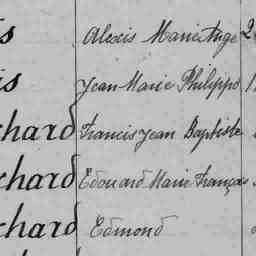 Alexis Marie Ange
Jean Marie Philippe
chard Francis Jean Baptiste
chard Edouard Marie François
chard Edmond